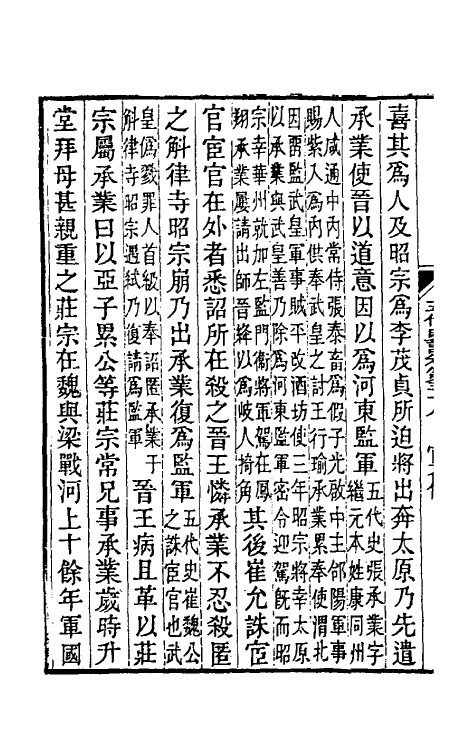 喜其爲人及昭宗爲李茂貞所迫將出奔太原乃先遣
承業使晉以道意因以爲河東監軍五代史張承業字
繼元本姓康同州
人咸通中内常侍張泰畜爲假子光啟中主郃陽軍事
賜紫入爲内供奉武皇之討王行瑜承業累奉使渭北
因畱監武皇軍事賊平改酒坊使三年昭宗將幸太原
以承業與武皇善乃除爲河東監軍密令迎駕旣而昭
宗幸華州就加左監門衞將軍駕在鳳
翔承業屢請出師晉絳以爲岐人掎角其後崔允誅宦
官宦官在外者悉詔所在殺之晉王憐承業不忍殺匿
之斛律寺昭宗崩乃出承業復爲監軍五代史崔魏公
之誅宦官也武
皇爲戮罪人首級以奉詔匿承業于
斛律寺昭宗遇弒乃復請爲監軍晉王病且革以莊
宗屬承業曰以亞子累公等莊宗常兄事承業歲時升
堂拜母甚親重之莊宗在魏與梁戰河上十餘年軍國